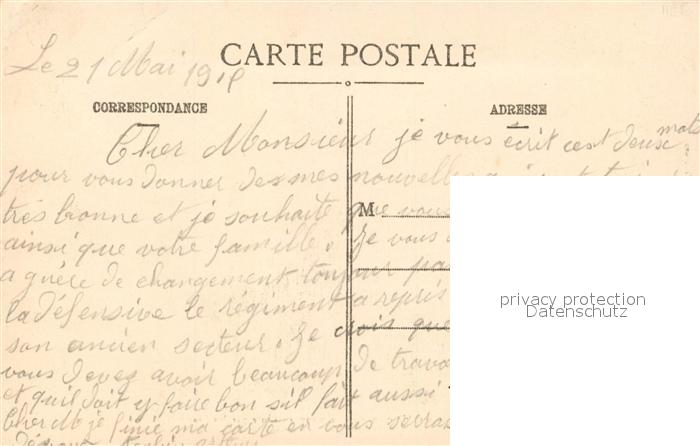 Le 21 Mai 191
CARTE POSTALE
CORRESPONDANCE
ADRESSE
Cher Monsieur je vous ecrit cest deux mots
pour vous donner des mes nouvelles
très bonne et je souhaite que vous
M
ainsi que votre famille. Je vous
a guère de changement toujour pas
la défensive le régiment a repris
son ancien secteur. Je crois que
vous devez avoir beaucoup de trava
et quil doit y faire bon sil fait aussi
Cher M je finie ma carte en vous serras
privacy protection
Datenschutz